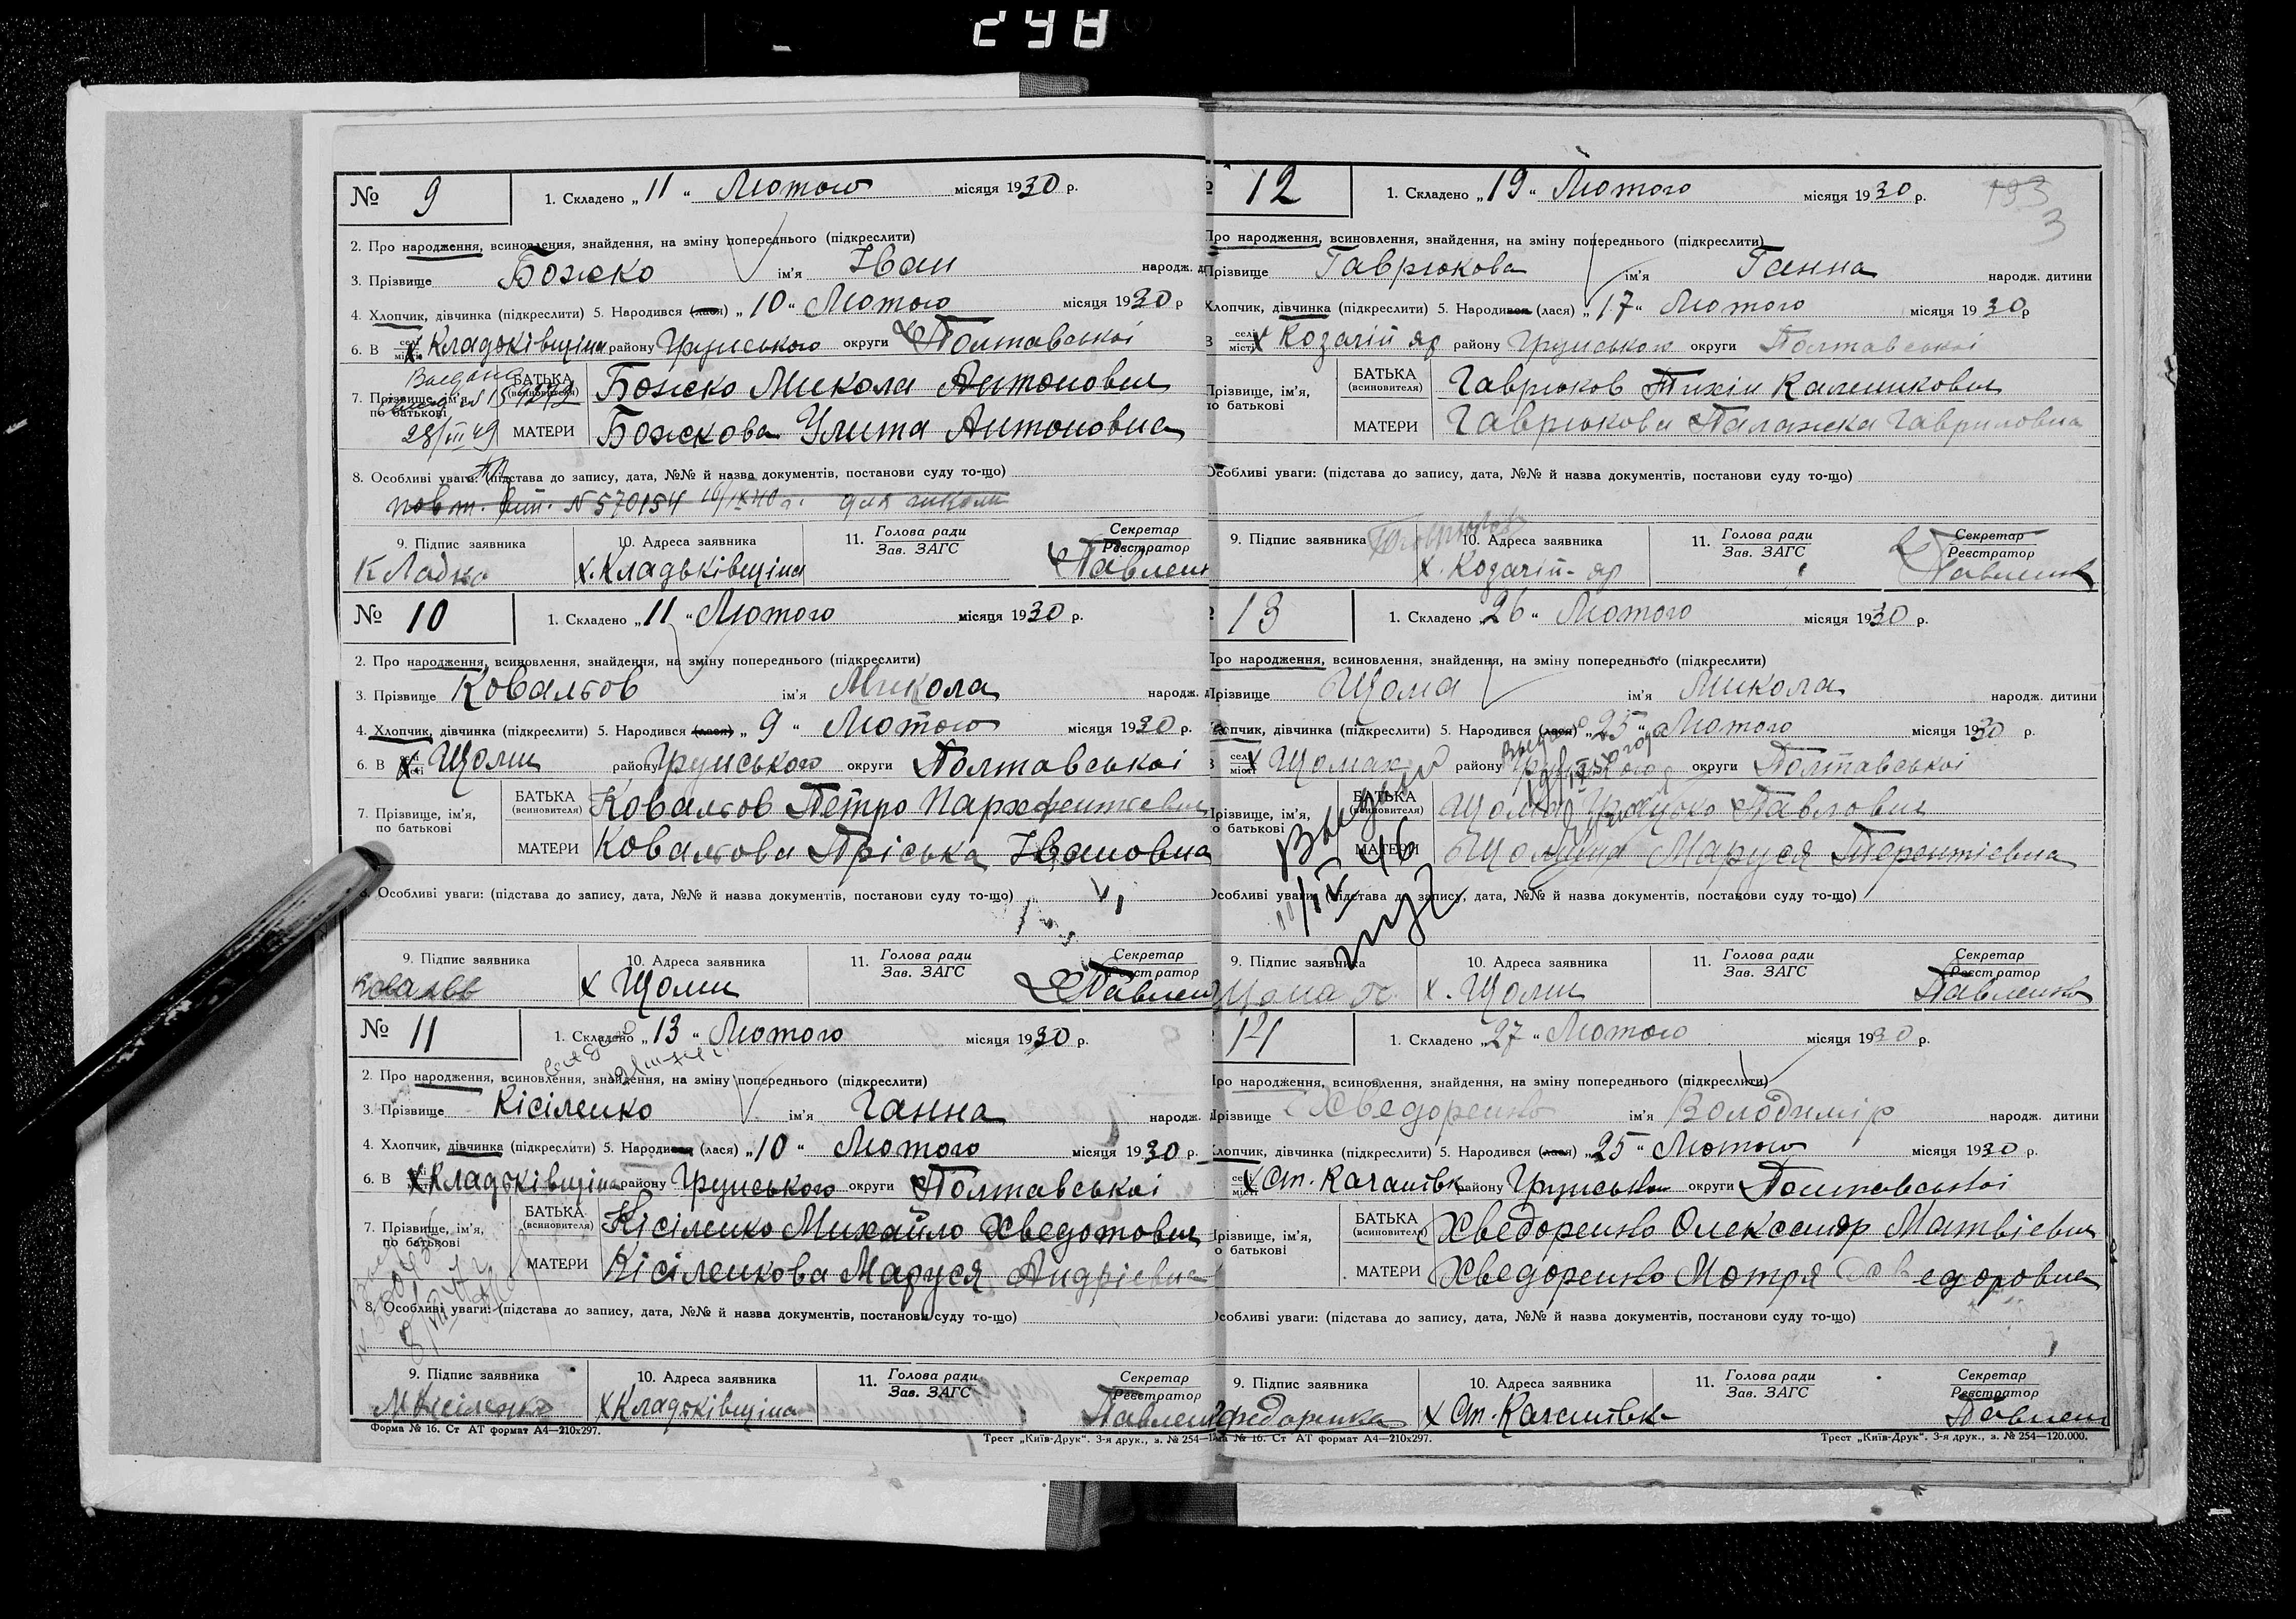 298
№ 9 1. Складено „ 11 “ Лютого місяця 1930 р.
2. Про народження, всиновлення, знайдення, на зміну попереднього (підкреслити)
3. Прізвище Божко ім'я Іван народж.
4. Хлопчик, дівчинка (підкреслити) 5. Народився (лася) „ 10 “ Лютого місяця 1930 р
6. В селі місті х Кладьківщіна району Грунського округи Полтавської
7. Прізвище, ім'я, по батькові
БАТЬКА (всиновителя) Божко Микола Антонович
28/III 49 МАТЕРИ Божкова Улита Антоновна
8. Особливі уваги: (підстава до запису, дата, №№ й назва документів, постанови суду то-що)
повт. N 570154 10/IX 40 р. для школи
9. Підпис заявника 10. Адреса заявника 11. Голова ради Зав. ЗАГС Секретар Реєстратор
х. Кладьківщіна
№ 10 1. Складено „ 11 “ Лютого місяця 1930 р.
2. Про народження, всиновлення, знайдення, на зміну попереднього (підкреслити)
3. Прізвище Ковальов ім'я Микола народж.
4. Хлопчик, дівчинка (підкреслити) 5. Народився (лася) „ 9 “ Лютого місяця 1930 р.
6. В х Щоми району Грунського округи Полтавської
7. Прізвище, ім'я, по батькові
БАТЬКА (всиновителя) Ковальов Петро
МАТЕРИ Ковальова Пріська Івановна
8. Особливі уваги: (підстава до запису, дата, №№ й назва документів, постанови суду то-що)
9. Підпис заявника 10. Адреса заявника 11. Голова ради Зав. ЗАГС Секретар Реєстратор
х Щоми
№ 11 1. Складено „ 13 “ Лютого місяця 1930 р.
2. Про народження, всиновлення, знайдення, на зміну попереднього (підкреслити)
3. Прізвище Кісіленко ім'я Ганна народж.
4. Хлопчик, дівчинка (підкреслити) 5. Народився (лася) „ 10 “ Лютого місяця 1930 р.
6. В х Кладьківщіна району Грунського округи Полтавської
7. Прізвище, ім'я, по батькові
БАТЬКА (всиновителя) Кісіленко Михайло Хведотович
МАТЕРИ Кісіленкова Маруся Андріевна
8. Особливі уваги: (підстава до запису, дата, №№ й назва документів, постанови суду то-що)
9. Підпис заявника 10. Адреса заявника 11. Голова ради Зав. ЗАГС Секретар Реєстратор
М Кісіленко х Кладьківщіна
Форма № 16. Ст АТ формат А4—210х297. Трест „Київ-Друк“. 3-я друк., з. № 254—
12 1. Складено „ 19 “ Лютого місяця 1930 р. 193
3
Про народження, всиновлення, знайдення, на зміну попереднього (підкреслити)
Прізвище Гаврюкова ім'я Ганна народж. дитини
Хлопчик, дівчинка (підкреслити) 5. Народився (лася) „ 17 “ Лютого місяця 1930 р
В селі місті х Козачій яр району Грунського округи Полтавської
Прізвище, ім'я, по батькові
БАТЬКА (всиновителя) Гаврюков Тихін Каленикович
МАТЕРИ Гаврюкова Палажка Гавриловна
Особливі уваги: (підстава до запису, дата, №№ й назва документів, постанови суду то-що)
9. Підпис заявника 10. Адреса заявника 11. Голова ради Зав. ЗАГС Секретар Реєстратор
х. Козачій-яр
13 1. Складено „ 26 “ Лютого місяця 1930 р.
Про народження, всиновлення, знайдення, на зміну попереднього (підкреслити)
Прізвище Щома ім'я Микола народж. дитини
Хлопчик, дівчинка (підкреслити) 5. Народився (лася) „ 25 “ Лютого місяця 1930 р.
В селі місті х Щомах району Грунського округи Полтавської
Прізвище, ім'я, по батькові
БАТЬКА (всиновителя) Щома Павлович
МАТЕРИ Маруся Терентіевна
Особливі уваги: (підстава до запису, дата, №№ й назва документів, постанови суду то-що)
9. Підпис заявника 10. Адреса заявника 11. Голова ради Зав. ЗАГС Секретар Реєстратор
Щома х. Щоми Павленко
14 1. Складено „ 27 “ Лютого місяця 1930 р.
Про народження, всиновлення, знайдення, на зміну попереднього (підкреслити)
Прізвище Хведоренко ім'я Володимір народж. дитини
Хлопчик, дівчинка (підкреслити) 5. Народився (лася) „ 25 “ Лютого місяця 1930 р.
х Ст. Качанівк району Грунсько округи Полтавської
Прізвище, ім'я, по батькові
БАТЬКА (всиновителя) Хведоренко Олександр Матвієвич
МАТЕРИ Хведоренко Мотря
Особливі уваги: (підстава до запису, дата, №№ й назва документів, постанови суду то-що)
9. Підпис заявника 10. Адреса заявника 11. Голова ради Зав. ЗАГС Секретар Реєстратор
х Ст. Качанівк
№ 16. Ст АТ формат А4—210х297. Трест „Київ-Друк“. 3-я друк., з. № 254—120.000.